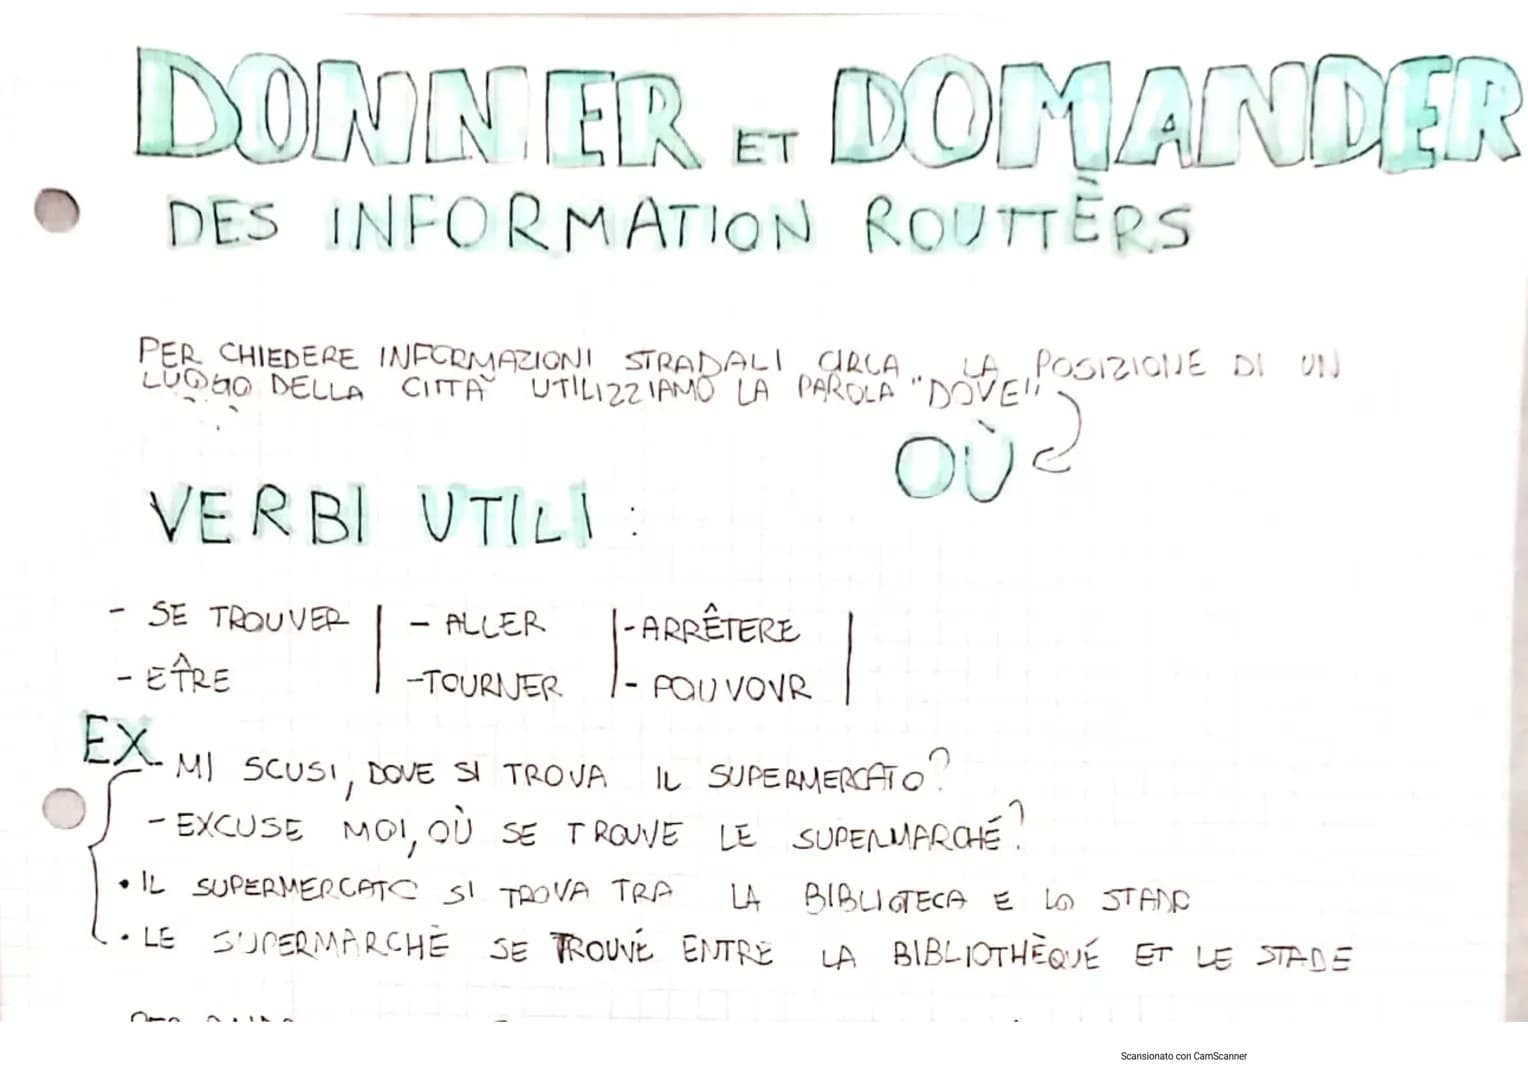 DONNER ET DOMANDER
DES INFORMATION ROUTTÈRS
PER CHIEDERE INFORMAZIONI STRADALI CIRCA LA POSIZIONE DI UN
LUOGO DELLA CITTÀ UTILIZZIAMO LA PAROLA "DOVE"
OÙ
VERBI UTILI :
- SE TROUVER - ALLER - ARRÊTERE
- EÂRE - TOURNER - POUVOVR
EX
MI SCUSI, DOVE SI TROVA IL SUPERMERCATO?
- EXCUSE MOI, OÙ SE TROUVE LE SUPERMARCHÉ?
• IL SUPERMERCATO SI TROVA TRA LA BIBLIOTECA E LO STADO
• LE SUPERMARCHÈ SE TROUVÉ ENTRE LA BIBLIOTHÈQUÉ ET LE STADE
Scansionato con CamScanner